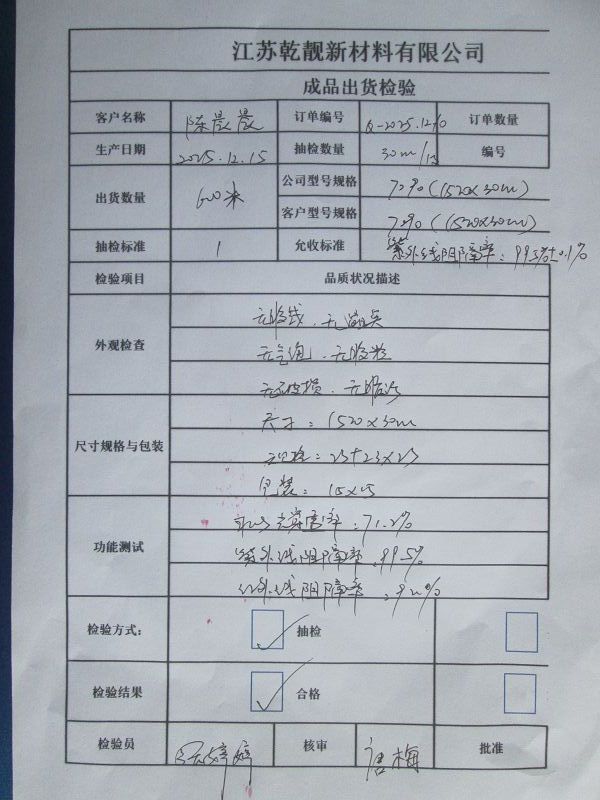 江苏乾靓新材料有限公司
成品出货检验
客户名称 陈晨晨 订单编号 订单数量
生产日期 2025.12.15 抽检数量 30m/ 编号
出货数量 600米 公司型号规格 7090(1520×30m)
客户型号规格 7090(1520×30m)
抽检标准 1 允收标准 紫外线阻隔率:99.5%±0.1%
检验项目 品质状况描述
外观检查 无胶线、无
无气泡、无胶粒
无破损、无脏污
尺寸规格与包装 尺寸:1520×30m
包装:
功能测试 率:71.2%
紫外线阻隔率:99.5%
红外线阻隔率:
检验方式: 抽检
检验结果 合格
检验员 婷婷 核审 唐梅 批准